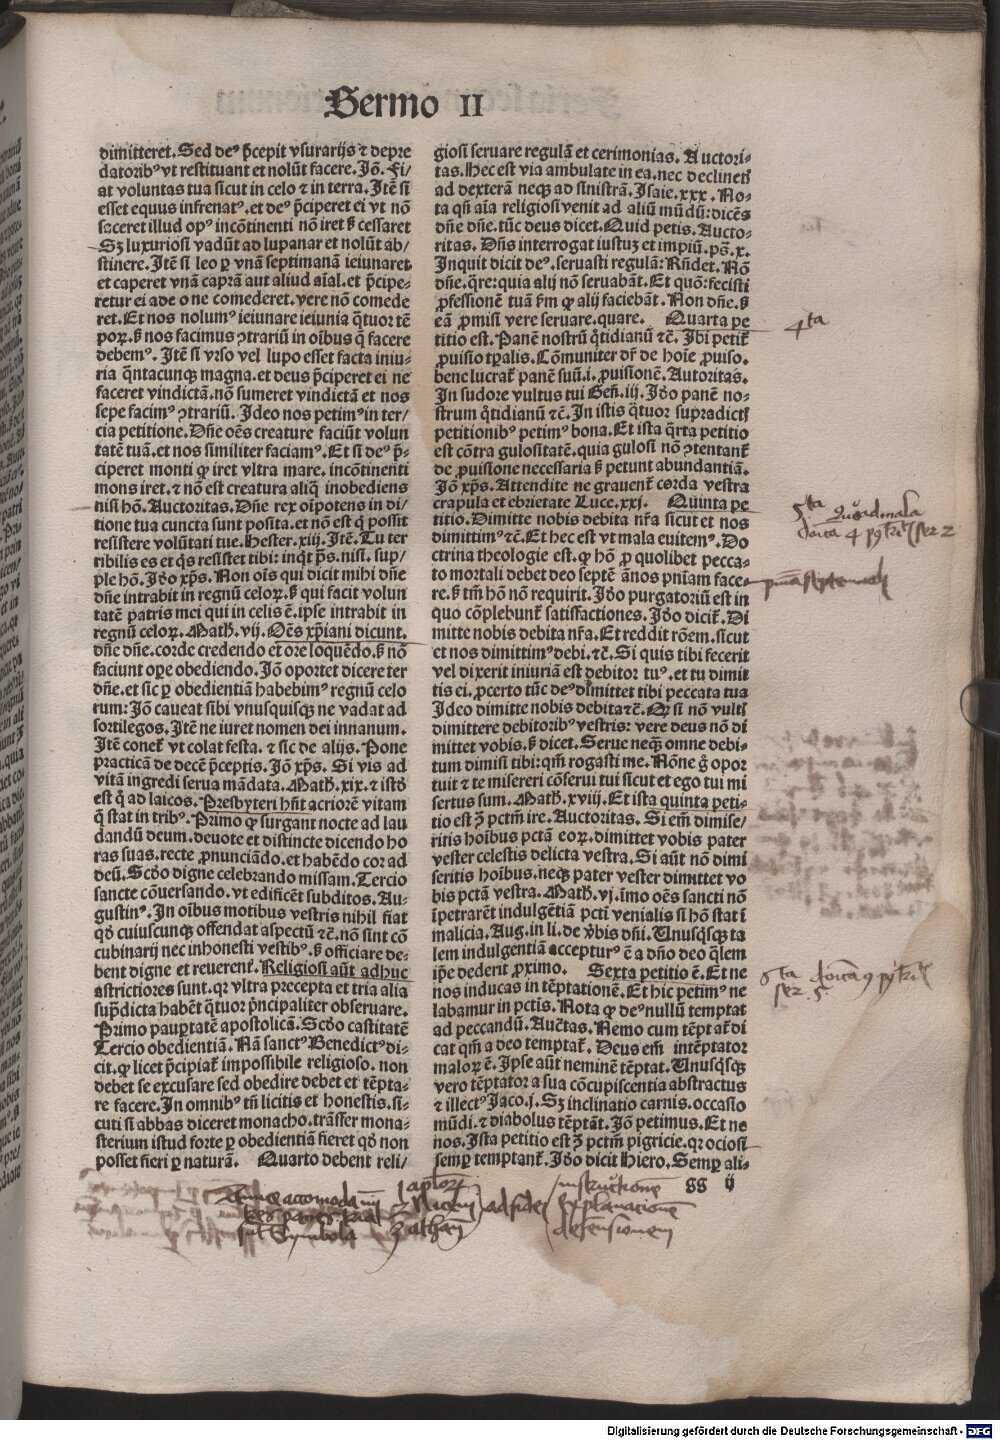 Sermo II
dimitteret. Sed deꝰ p̄cepit vsurarijs ⁊ depre
datoribꝰ vt restituant et nolūt facere. Jō. Fi/
at voluntas tua sicut in celo ⁊ in terra. Itē si
esset equus infrenatꝰ. et deꝰ p̄ciperet ei vt nō
faceret illud opꝰ incōtinenti nō iret sꝫ cessaret
Sꝫ luxuriosi vadūt ad lupanar et nolūt ab/
stinere. Itē si leo ꝑ vnā septimanā ieiunaret
et caperet vnā caprā aut aliud aīal. et p̄cipe⸗
retur ei a deo ne comederet. vere nō comede
ret. Et nos nolumꝰ ieiunare ieiunia q̄tuor tē
poꝝ. sꝫ nos facimus ꝯtrariū in oībus q̄ facere
debemꝰ. Itē si vrso vel lupo esset facta iniu⸗
ria q̄ntacunqꝫ magna. et deus p̄ciperet ei ne
faceret vindictā. nō sumeret vindictā et nos
sepe facimꝰ ꝯtrariū. Ideo nos petimꝰ in ter/
cia petitione. Dn̄e oēs creature faciūt volun
tatē tuā. et nos similiter faciamꝰ. Et si deꝰ p̄⸗
ciperet monti ꝙ iret vltra mare. incōtinenti
mons iret. ⁊ nō est creatura aliq̄ inobediens
nisi hō. Auctoritas. Dn̄e rex oīpotens in di/
tione tua cuncta sunt posita. et nō est q̄ possit
resistere volūtati tue. Hester. xiij. Itē. Tu ter
ribilis es et q̄s resistet tibi: inq̄t p̄s. nisi. sup/
ple hō. Iō xp̄s. Non oīs qui dicit mihi dn̄e
dn̄e intrabit in regnū celoꝝ. sꝫ qui facit volun
tatē patris mei qui in celis ē. ipse intrabit in
regnū celoꝝ. Math. vij. Oēs xp̄iani dicunt.
dn̄e dn̄e. corde credendo et ore loquēdo. sꝫ nō
faciunt oꝑe obediendo. Jō oportet dicere ter
dn̄e. et sic ꝑ obedientiā habebimꝰ regnū celo
rum: Jō caueat sibi vnusquisqꝫ ne vadat ad
sortilegos. Itē ne iuret nomen dei innanum.
Itē conet᷑ vt colat festa. ⁊ sic de alijs. Pone
practicā de decē p̄ceptis. Jō xp̄s. Si vis ad
vitā ingredi serua mādata. Math. xix. ⁊ istō
est q̄ ad laicos. Presbyteri hn̄t acriorē vitam
q̄ stat in tribꝰ. Primo ꝙ surgant nocte ad lau
dandū deum. deuote et distincte dicendo ho
ras suas. recte ꝓnunciādo. et habēdo cor ad
deū. Scd̄o digne celebrando missam. Tercio
sancte cōuersando. vt edificēt subditos. Au⸗
gustinꝰ. In oībus motibus vestris nihil fiat
qd̄ cuiuscunqꝫ offendat aspectū ⁊c̄. nō sint cō
cubinarij nec inhonesti vestibꝰ. sꝫ officiare de⸗
bent digne et reuerent᷑. Religiosi aūt adhuc
astrictiores sunt. qꝛ vltra precepta et tria alia
sup̄dicta habēt q̄tuor p̄ncipaliter obseruare.
Primo pauꝑtatē apostolicā. Scd̄o castitatē
Tercio obedientiā. Nā sanctꝰ Benedictꝰ di⸗
cit. ꝙ licet p̄cipiat᷑ impossibile religioso. non
debet se excusare sed obedire debet et tēpta⸗
re facere. In omnibꝰ tn̄ licitis et honestis. si⸗
cuti si abbas diceret monacho. trāsfer mona⸗
sterium istud forte ꝑ obedientiā fieret qd̄ non
posset fieri ꝑ naturā. Quarto debent reli/
giosi seruare regulā et cerimonias. Auctori⸗
tas. Hec est via ambulate in ea. nec declinetꝭ
ad dexterā neqꝫ ad sinistrā. Isaie. xxx. No⸗
ta qn̄ aīa religiosi venit ad aliū mūdū: dicēs
dn̄e dn̄e. tūc deus dicet. Quid petis. Aucto⸗
ritas. Dn̄s interrogat iustuꝫ et impiū. ps̄. x.
Inquit dicit deꝰ. seruasti regulā: Rn̄det. Nō
dn̄e. q̄re: quia alij nō seruabāt. Et quō: fecisti
ꝓfessionē tuā fm̄ ꝙ alij faciebāt. Non dn̄e. sꝫ
eā ꝓmisi vere seruare. quare. Quarta pe
titio est. Panē nostrū q̄tidianū ⁊c̄. Ibi petit᷑
ꝓuisio tꝑalis. Cōmuniter dr̄ de hoīe ꝓuiso.
bene lucrat᷑ panē suū. i. ꝓuisionē. Autoritas.
In sudore vultus tui Gen̄. iij. Iō panē no⸗
strum q̄tidianū ⁊c̄. In istis q̄tuor supradictꝭ
petitionibꝰ petimꝰ bona. Et ista q̄rta petitio
est cōtra gulositatē. quia gulosi nō ꝯtentant᷑
de ꝓuisione necessaria sꝫ petunt abundantiā.
Jō xp̄s. Attendite ne grauent᷑ corda vestra
crapula et ebrietate Luce. xxj. Quinta pe
titio. Dimitte nobis debita nr̄a sicut et nos
dimittimꝰ ⁊c̄. Et hec est vt mala euitemꝰ. Do
ctrina theologie est. ꝙ hō ꝓ quolibet pecca⸗
to mortali debet deo septē ānos pn̄iam face⸗
re. sꝫ tm̄ hō nō requirit. Iō purgatoriū est in
quo cōplebunt᷑ satisfactiones. Iō dicit᷑. Di
mitte nobis debita nr̄a. Et reddit rōem. sicut
et nos dimittimꝰ debi. ⁊c̄. Si quis tibi fecerit
vel dixerit iniuriā est debitor tuꝰ. et tu dimit
tis ei. ꝓcerto tūc deꝰ dimittet tibi peccata tua
Ideo dimitte nobis debita ⁊c̄. Qꝛ si nō vultꝭ
dimittere debitoribꝰ vestris: vere deus nō di
mittet vobis. sꝫ dicet. Serue neqꝫ omne debi⸗
tum dimisi tibi: qm̄ rogasti me. Nōne g̊ opor
tuit ⁊ te misereri cōserui tui sicut et ego tui mi
sertus sum. Math. xviij. Et ista quinta peti⸗
tio est ꝯ̄ pctm̄ ire. Auctoritas. Si em̄ dimise/
ritis hoībus pctā eoꝝ. dimittet vobis pater
vester celestis delicta vestra. Si aūt nō dimi
seritis hoībus. neqꝫ pater vester dimittet vo
bis pctā vestra. Math. vj. īmo oēs sancti nō
īpetrarēt indulgētiā pcti venialis si hō stat ī
malicia. Aug. in li. de v̄bis dn̄i. Unusqsqꝫ ta
lem indulgentiā accepturꝰ ē a dn̄o deo q̄lem
ip̄e dederit ꝓximo. Sexta petitio ē. Et ne
nos inducas in tēptationē. Et hic petimꝰ ne
labamur in pctīs. Nota ꝙ deꝰ nullū temptat
ad peccandū. Auctas. Nemo cum tēptat᷑ di
cat qm̄ a deo temptat᷑. Deus em̄ intēptator
maloꝝ ē. Ipse aūt neminē tēptat. Unusqsqꝫ
vero tēptatur a sua cōcupiscentia abstractus
⁊ illectꝰ Jaco. j. Sꝫ inclinatio carnis. occasio
mūdi. ⁊ diabolus tēptāt. Jō petimus. Et ne
nos. Ista petitio est ꝯ̄ pctm̄ pigricie. qꝛ ociosi
semꝑ temptant᷑. Iō dicit Hiero. Semꝑ ali⸗
gg ij
4ta
5ta
6ta
ser. 5
ad fidei
instructionē
explanationē
defensionem
Symbola
Digitalisierung gefördert durch die Deutsche Forschungsgemeinschaft - DFG